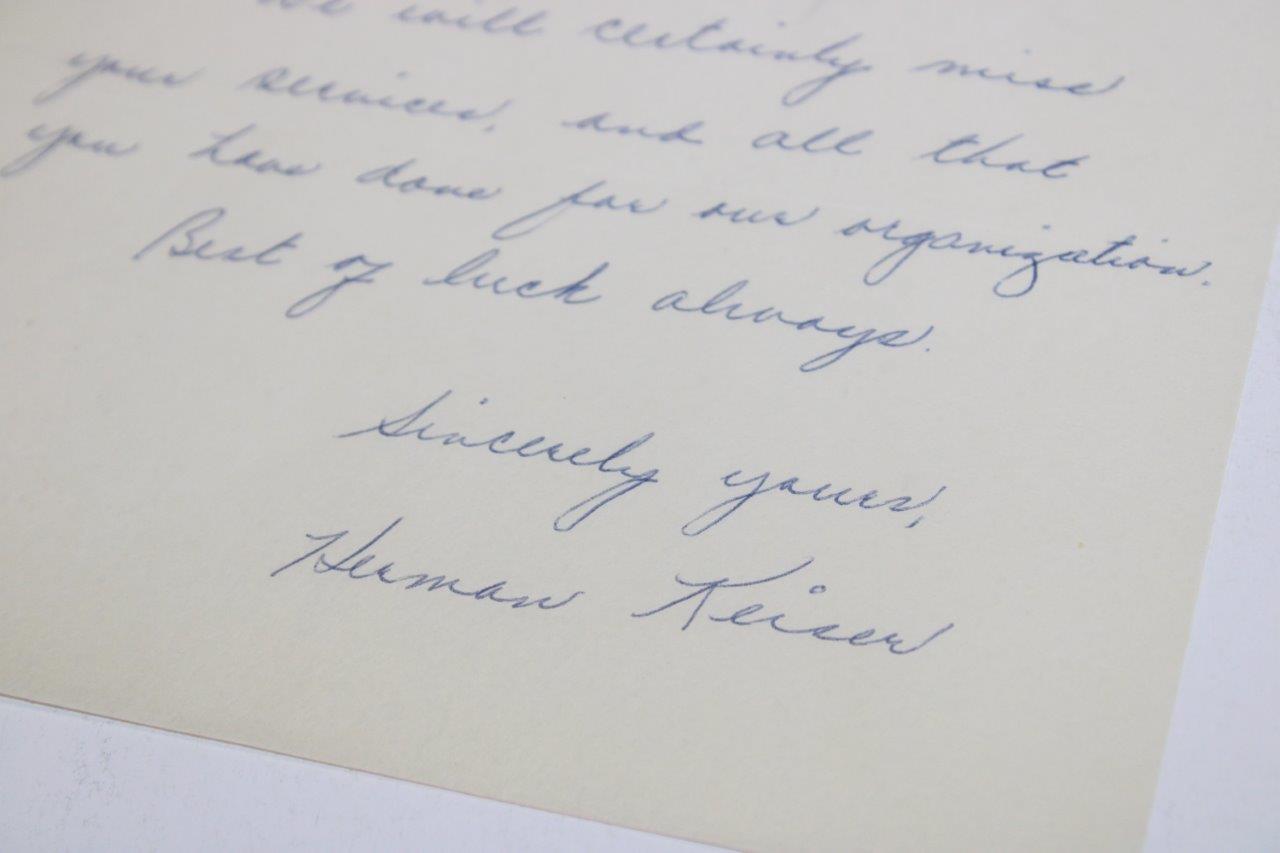 We will certainly miss
your services, and all that
you have done for our organization.
Best of luck always.
Sincerely yours,
Herman Keiser